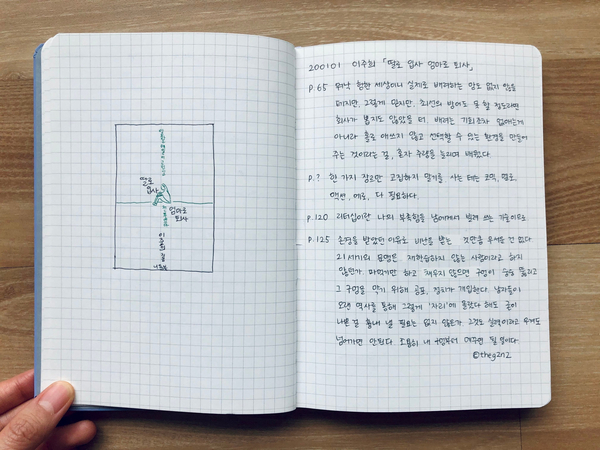 딸로
입사
엄마로
퇴사
이주희
200101 이주희 「딸로 입사 엄마로 퇴사」
P.65 워낙 험한 세상이니 실제로 배려하는 맘도 없지 않을
테지만, 그렇게 만지만, 최선의 방어도 못 할 정도라면
회사가 뽑지도 않았을 터. 배려는 기회조차 없애는게
아니라 홀로 애쓰지 않고 선택할 수 있는 환경을 만들어
주는 것이라는 걸, 혼자 수랑을 늘리며 배웠다.
P.? 한 가지 장르만 고집하지 말기를 사는 데는 코믹, 멜로,
액션, 에로, 다 필요하다.
P.120 리더십이란 나의 부족함을 넘어에서 빌려 쓰는 기술이므로,
P.125 존경을 받았던 이유로 비난을 받는 것만큼 우세운 건 없다
21세기의 문맹은 재학습하지 않는 사람이라고 하지
않던가. 파먹기만 하고 채우지 않으면 구멍이 숭숭 뚫리고
그 구멍을 막기 위해 공포, 정치가 개입한다. 남자들이
오랜 역사를 통해 그렇게 '자리'에 올랐다 해도 굳이
나쁜 걸 흉내 낼 필요는 없지 않은가 그것도 실력이라고 우겨도
넘어가면 안된다. 조용히 내 구멍부터 메우면 될 일이다.
©theg2n2